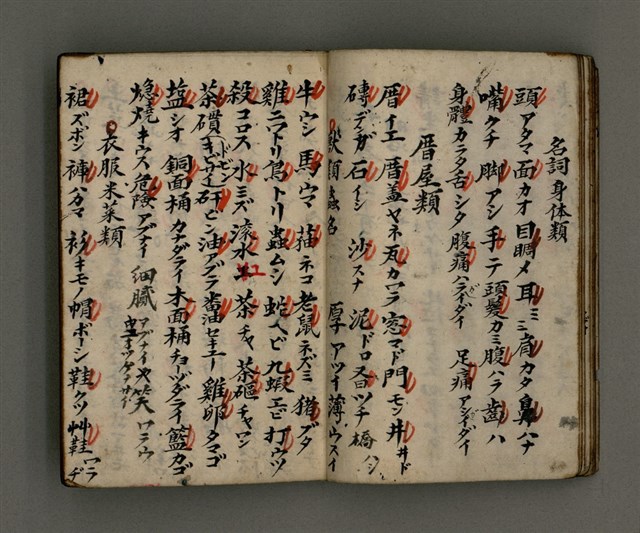 名詞 身体類
頭アタマ 面カオ 目睭メ 耳ミミ 肩カタ 鼻ハナ
嘴クチ 脚アシ 手テ 頭髮カミ 腹ハラ 齒ハ
身體カラタ 舌シタ 腹痛ハライダイ 足痛アシイダイ
厝屋類
厝イエ 厝蓋ヤネ 瓦カワラ 窓マド 門モン 井井ド
磚 石イシ 沙スナ 泥ドロ 沓ツチ 橋ハシ
厚アツイ 薄ウスイ
牛ウシ 馬ウマ 猫ネコ 老鼠ネズミ 猪ブタ
雞ニワトリ 鳥トリ 蟲ムシ 蛇ヘビ 九蝦エビ 打ウツ
殺コロス 水ミズ 滾水 紅 茶チャ 茶碗チャワン
茶礶 矸ビン 油アブラ 雞卵タマゴ
塩シオ 銅面桶カナダライ 木面桶チョーヅダライ 籃カゴ
燒 危險アブナイ 細膩アブナイ 笑ワラウ
衣服米菜類
裙ズボン 褲ハカマ 衫キモノ 帽ボーシ 鞋クツ 艸鞋ワラヂ